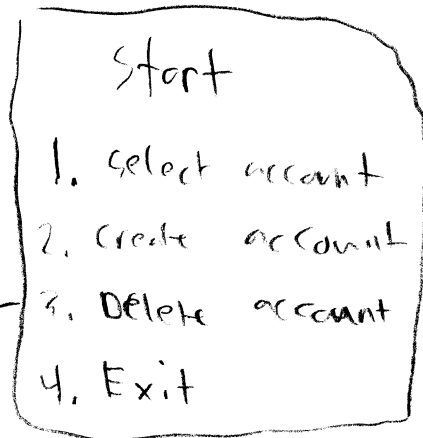 Start
1. Select account
2. Create account
3. Delete account
4. Exit